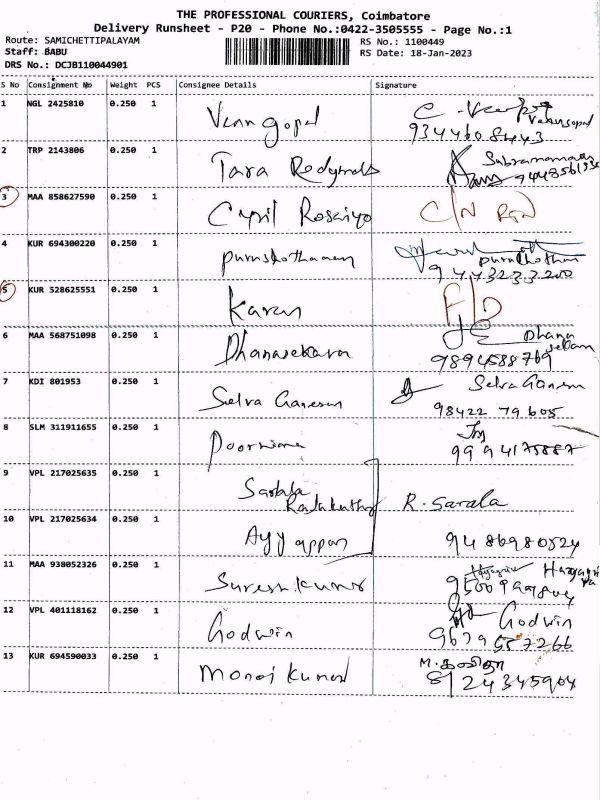 THE PROFESSIONAL COURIERS, Coimbatore
Delivery Runsheet - P20 - Phone No.:0422-3505555 - Page No.:1
Route: SAMICHETTIPALAYAM RS No.: 1100449
Staff: BABU RS Date: 18-Jan-2023
DRS No.: DCJB110044901
S No Consignment No Weight PCS Consignee Details Signature
1 NGL 2425810 0.250 1 Venn gopal Venugopal
9344608443
2 TRP 2143806 0.250 1 Tara
3 MAA 858627590 0.250 1 Cyril Rosariyo C/N RTN
4 KUR 694300220 0.250 1 purushothaman purushothan
9443233200
5 KUR 528625551 0.250 1 Karan F/D
6 MAA 568751098 0.250 1 Dhanasekaran Dhana
sekaran
9894588769
7 KDI 801953 0.250 1 Selva Ganesan Selva Ganesan
98422 79605
8 SLM 311911655 0.250 1 Poornima
9994175887
9 VPL 217025635 0.250 1 Sarala R. Sarala
10 VPL 217025634 0.250 1 Ayyappan 9486980524
11 MAA 938052326 0.250 1 Suresh Kumar
12 VPL 401118162 0.250 1 Godwin Godwin
9629557266
13 KUR 694590033 0.250 1 Manoj Kumar M. கவிதா
8124345904